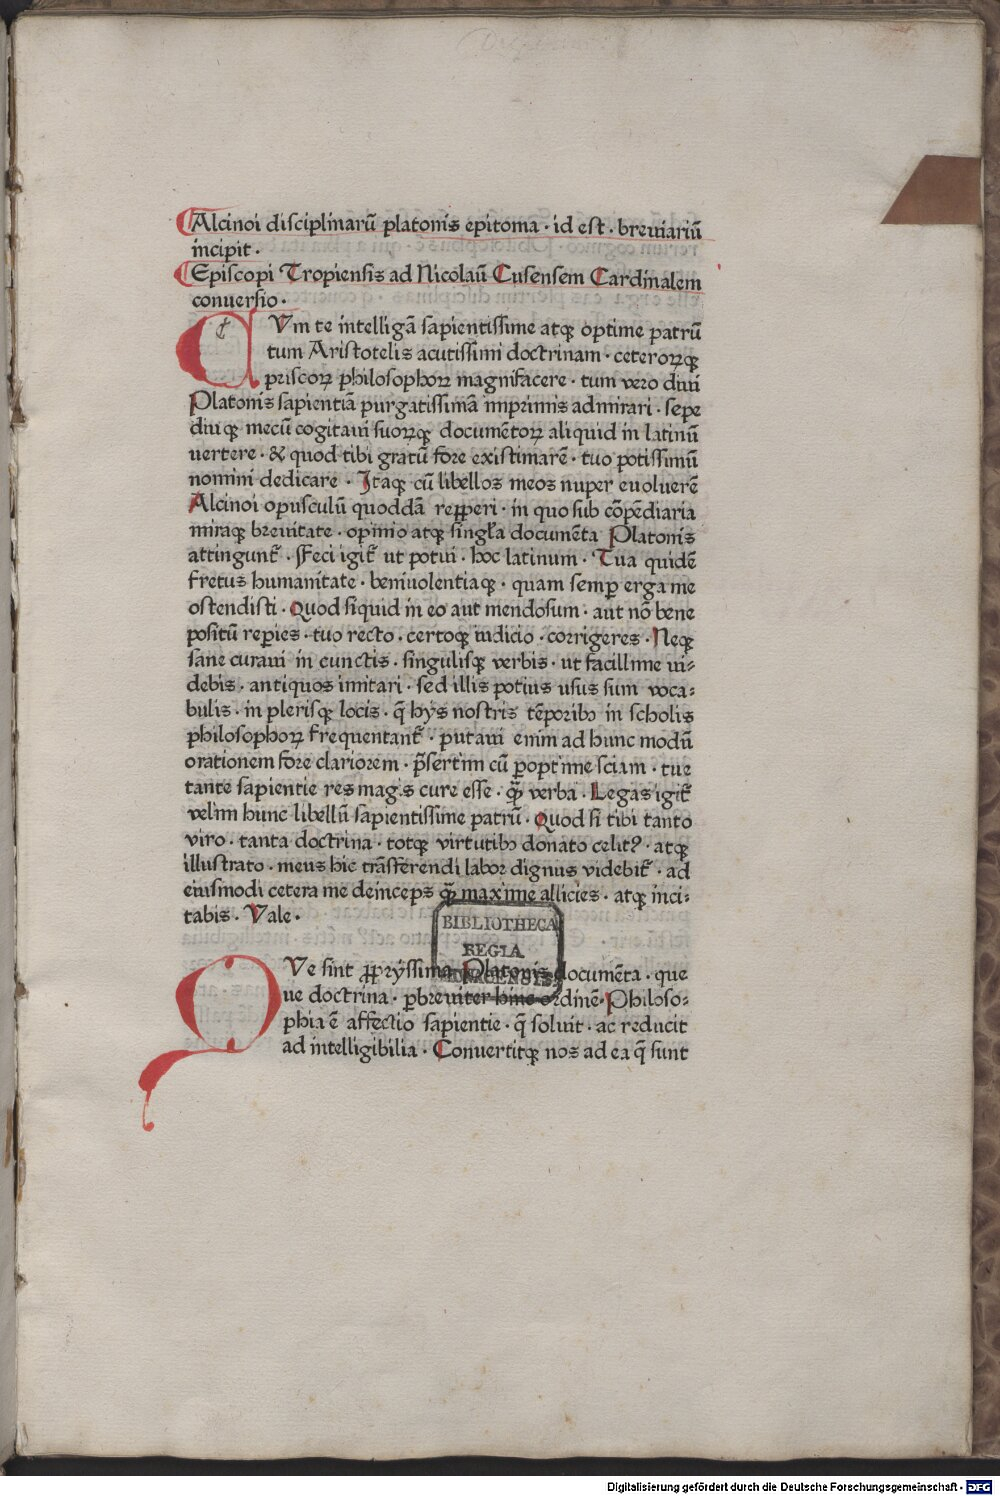 Alcinoi disciplinarū platonis epitoma · id est · breuiariū
incipit ·
Episcopi Tropiensis ad Nicolaū Cusensem Cardinalem
conuersio ·
CVm te intelligā sapientissime atqꝫ optime patrū
tum Aristotelis acutissimi doctrinam · ceteroꝝqꝫ
priscoꝝ philosophoꝝ magnifacere · tum vero diui
Platonis sapientiā purgatissimā inprimis admirari · sepe
diuqꝫ mecū cogitaui suoꝝqꝫ documētoꝝ aliquid in latinū
uertere · & quod tibi gratū fore existimarē · tuo potissimū
nomini dedicare · Itaqꝫ cū libellos meos nuper euoluerē
Alcinoi opusculū quoddā reꝑperi · in quo sub cōpēdiaria
miraqꝫ breuitate · opinio atqꝫ singl̄a documēta Platonis
attingunt᷑ · Feci igit᷑ ut potui · hoc latinum · Tua quidē
fretus humanitate · beniuolentiaqꝫ · quam semꝑ erga me
ostendisti · Quod siquid in eo aut mendosum · aut nō bene
positū reꝑies · tuo recto · certoqꝫ iudicio · corrigeres · Neqꝫ
sane curaui in cunctis · singulisqꝫ verbis · ut facillime ui-
debis · antiquos imitari · sed illis potius usus sum voca-
bulis · in plerisqꝫ locis · q̄ hys nostris tēporibꝫ in scholis
philosophoꝝ frequentant᷑ · putaui enim ad hunc modū
orationem fore clariorem · p̄sertim cū ꝑoptime sciam · tue
tante sapientie res magis cure esse · qꝫ̄ verba · Legas igit᷑
velim hunc libellū sapientissime patrū · Quod si tibi tanto
viro · tanta doctrina · totqꝫ virtutibꝫ donato celit? · atqꝫ
illustrato · meus hic trāsferendi labor dignus videbit᷑ · ad
eiusmodi cetera me deinceps qꝫ̄ maxime allicies · atqꝫ inci-
tabis · Vale ·
BIBLIOTHECA
REGIA
MONACENSIS.
QVe sint ꝓpryssima Platonis documēta · que
ue doctrina · ꝑbreuiter hinc ordinē · Philoso-
phia ē affectio sapientie · q̄ soluit · ac reducit
ad intelligibilia · Conuertitqꝫ nos ad ea q̄ sunt
Digitalisierung gefördert durch die Deutsche Forschungsgemeinschaft · DFG